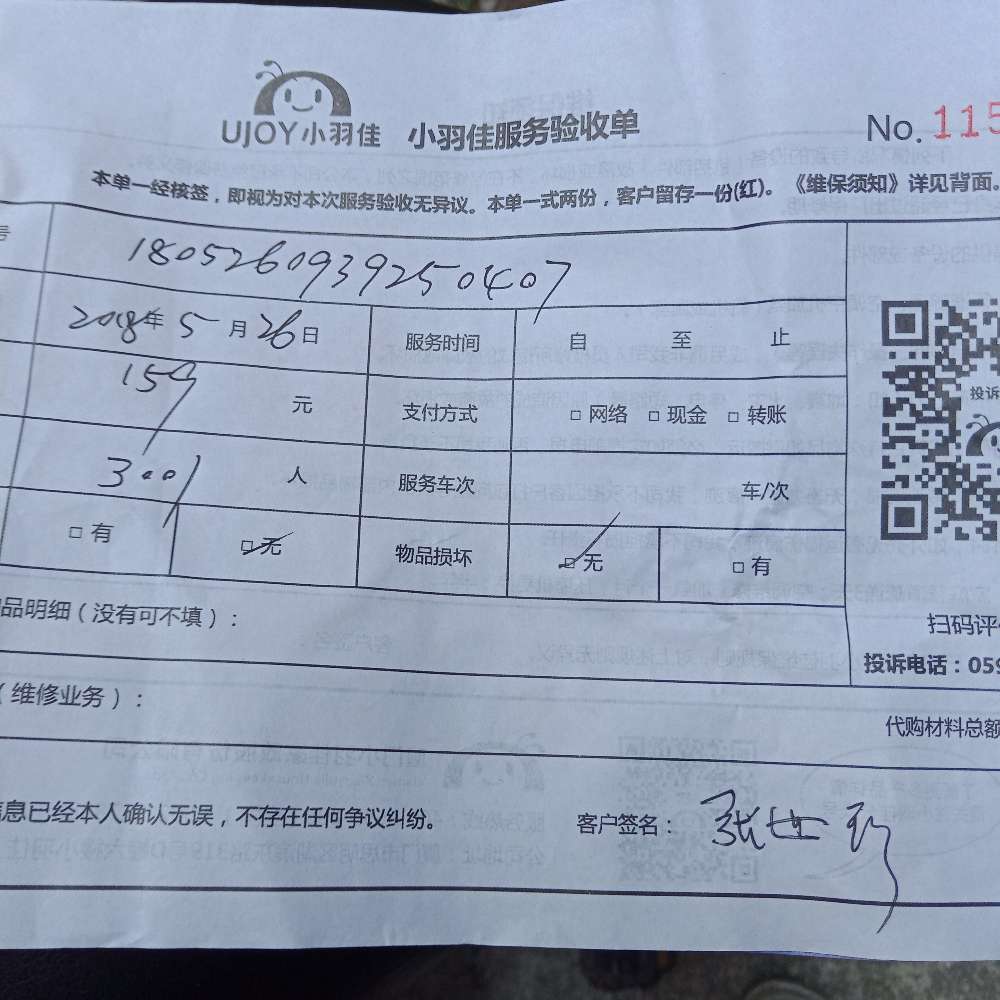 UJOY小羽佳 小羽佳服务验收单 No.115
本单一经核签，即视为对本次服务验收无异议。本单一式两份，客户留存一份(红)。《维保须知》详见背面。
号 180526093925 0407
2018年 5 月 26 日 服务时间 自 至 止
159 元 支付方式 □ 网络 □ 现金 □ 转账
人 服务车次 车/次
□ 有 □ 无 物品损坏 □ 无 □ 有
品明细（没有可不填）：
扫码评
投诉
投诉电话：059
（维修业务）：
代购材料总额
信息已经本人确认无误，不存在任何争议纠纷。 客户签名：张世